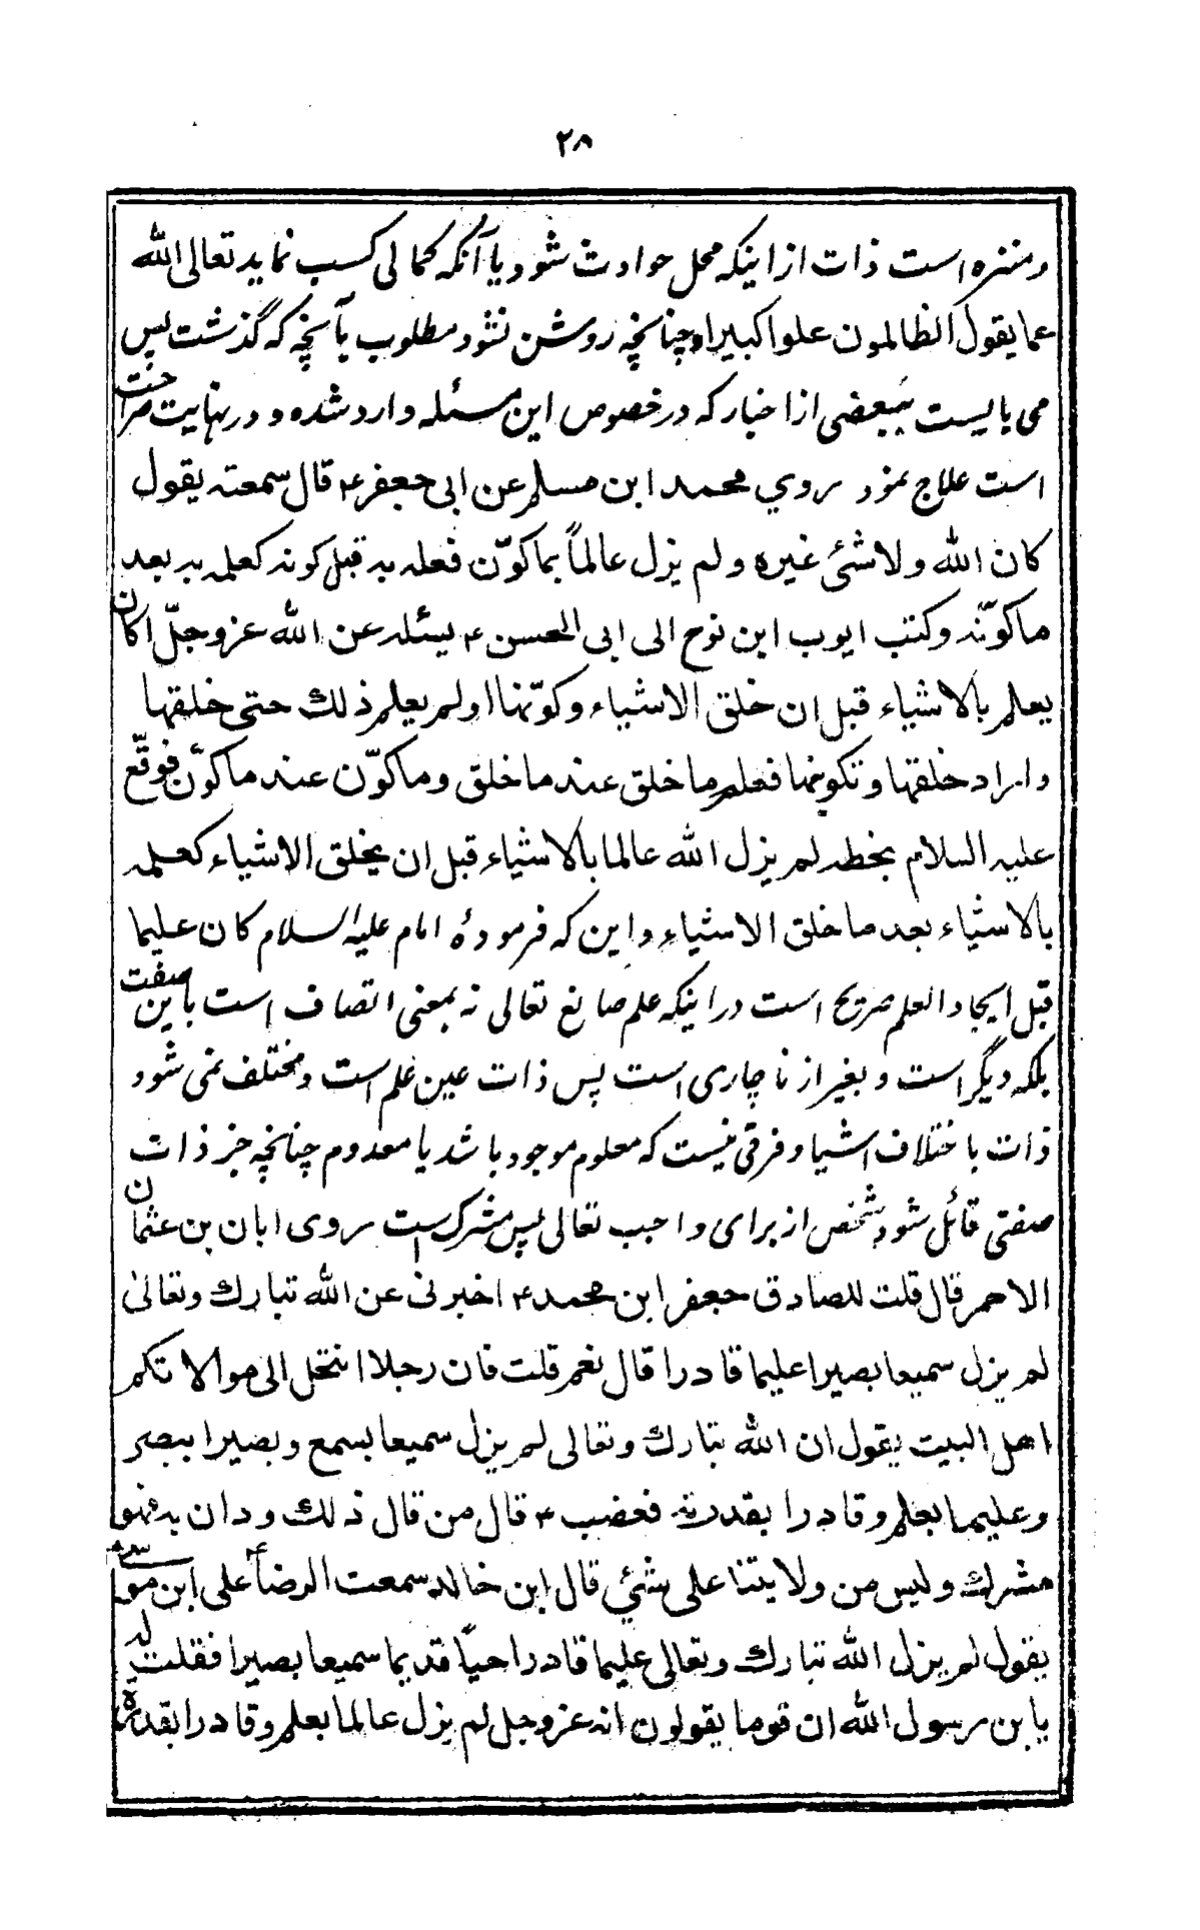 ۲۸
ومنزه است ذات از اینکه محل حوادث شود یا آنکه کمالی کسب نماید تعالی الله
عما یقول الظالمون علوا کبیرا وچنانچه روشن نشود مطلوب بآنچه که گذشت پس
می بایست ببعضی از اخبار که در خصوص این مسئله وارد شده و در نهایت صراحت
است علاج نمود روي محمد ابن مسلم عن ابی جعفر ع قال سمعته یقول
کان الله ولا شئی غیره و لم یزل عالماً بما کوّن فعلمه به قبل کونه کعلمه به بعد
ما کوّنه وکتب ایوب ابن نوح الی ابی الحسن ع یسئله عن الله عزوجلّ اکان
یعلم بالاشیاء قبل ان خلق الاشیاء وکوّنها اولم یعلم ذلك حتی خلقها
واراد خلقها وتکوینها فعلم ما خلق عند ما خلق وما کوّن عند ما کوّن فوقّع
علیه السلام بخطه لم یزل الله عالما بالاشیاء قبل ان یخلق الاشیاء کعلمه
بالاشیاء بعد ما خلق الاشیاء واین که فرمودهٔ امام علیه السلام کان علیما
قبل ایجاد العلم صریح است در اینکه علم صانع تعالی نه بمعنی اتصاف است باین صفت
بلکه دیگر است و بغیر از ناچاری است پس ذات عین علم است و مختلف نمی شود
ذات با ختلاف اشیا و فرقی نیست که معلوم موجود باشد یا معدوم چنانچه جز ذات
صفتی قائل شود شخص از برای واجب تعالی پس مشرک است روی ابان بن عثمان
الاحمر قال قلت للصادق جعفر ابن محمد ع اخبرنی عن الله تبارك وتعالیٰ
لم یزل سمیعا بصیرا علیما قادرا قال نعم قلت فان رجلا انتحل الی موالاتکم
اهل البیت یقول ان الله تبارك وتعالی لم یزل سمیعا بسمع وبصیرا ببصر
وعلیما بعلم وقادرا بقدرة فغضب ع قال من قال ذلك ودان به فهو
مشرك ولیس من ولایتنا علی شئي قال ابن خالد سمعت الرضا ع علی ابن موسی
یقول لم یزل الله تبارك وتعالی علیما قادرا حیّا قدیما سمیعا بصیرا فقلت له
یابن رسول الله ان قوما یقولون انه عزوجل لم یزل عالما بعلم وقادرا بقدرة